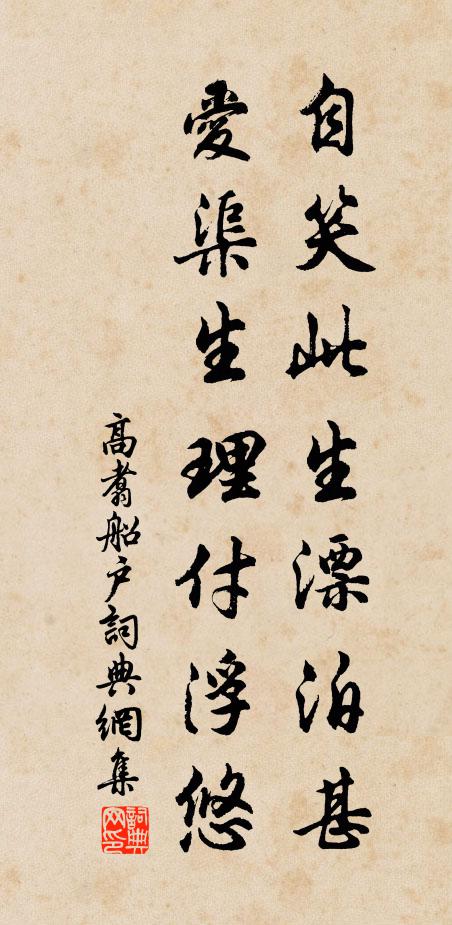 自笑此生漂泊甚
愛渠生理付浮悠
高翥船戶詞典網集
詞典網印